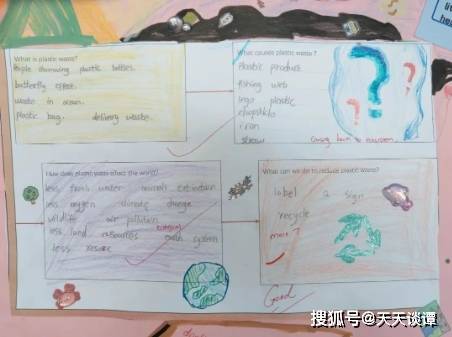 What is plastic waste?
people throwing plastic bottles.
butterfly effect.
waste in ocean.
plastic bag. delivery waste.
What causes plastic waste?
Plastic product
fishing web
lego plastic
chopsticks
iron
straw
How does plastic waste affect the world?
less fresh water animals extinction
less oxygen climate change
wildlife air pollution
less land resources system
less
What can we do to reduce plastic waste?
label a sign
recycle
more?
Good
搜狐号@天天谈谭